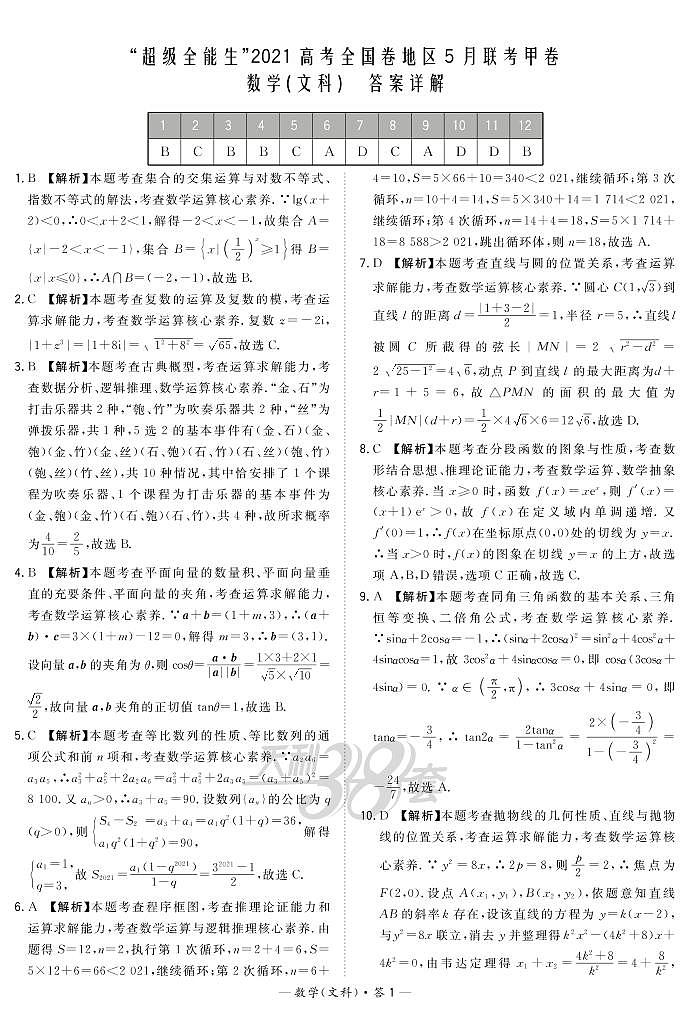 “超级全能生”2021高考全国卷地区5月联考甲卷
数学(文科) 答案详解
1 2 3 4 5 6 7 8 9 10 11 12
B C B B C A D C A D D B
1. B 【解析】本题考查集合的交集运算与对数不等式、
指数不等式的解法,考查数学运算核心素养.∵lg(x+
2)<0,∴0<x+2<1,解得-2<x<-1,故集合A=
{x|-2<x<-1},集合B={x|(1/2)^x≥1}得B=
{x|x≤0},∴A∩B=(-2,-1),故选B.
2. C 【解析】本题考查复数的运算及复数的模,考查运
算求解能力,考查数学运算核心素养.复数z=-2i,
|1+z³|=|1+8i|=√(1²+8²)=√65,故选C.
3. B 【解析】本题考查古典概型,考查运算求解能力,考
查数据分析、逻辑推理、数学运算核心素养.“金、石”为
打击乐器共2种,“匏、竹”为吹奏乐器共2种,“丝”为
弹拨乐器,共1种,5选2的基本事件有(金、石)(金、
匏)(金、竹)(金、丝)(石、匏)(石、竹)(石、丝)(匏、竹)
(匏、丝)(竹、丝),共10种情况,其中恰安排了1个课
程为吹奏乐器、1个课程为打击乐器的基本事件为
(金、匏)(金、竹)(石、匏)(石、竹),共4种,故所求概率
为4/10=2/5,故选B.
4. B 【解析】本题考查平面向量的数量积、平面向量垂
直的充要条件、平面向量的夹角,考查运算求解能力,
考查数学运算核心素养.∵a+b=(1+m,3),∴(a+
b)·c=3×(1+m)-12=0,解得m=3,∴b=(3,1).
设向量a,b的夹角为θ,则cosθ=a·b/|a||b|=(1×3+2×1)/(√5×√10)=
√2/2,故向量a,b夹角的正切值tanθ=1,故选B.
5. C 【解析】本题考查等比数列的性质、等比数列的通
项公式和前n项和,考查数学运算核心素养.∵a₂a₆=
a₃a₅,∴a₃²+a₅²+2a₂a₆=a₃²+a₅²+2a₃a₅=(a₃+a₅)²=
8 100.又aₙ>0,∴a₃+a₅=90.设数列{aₙ}的公比为q
(q>0),则{S₄-S₂=a₃+a₄=a₁q²(1+q)=36, a₁q²(1+q²)=90, 解得
{a₁=1, q=3, 故S₂₀₂₁=a₁(1-q²⁰²¹)/(1-q)=(3²⁰²¹-1)/2,故选C.
6. A 【解析】本题考查程序框图,考查推理论证能力和
运算求解能力,考查数学运算与逻辑推理核心素养.由
题得S=12,n=2,执行第1次循环,n=2+4=6,S=
5×12+6=66<2 021,继续循环;第2次循环,n=6+
4=10,S=5×66+10=340<2 021,继续循环;第3次
循环,n=10+4=14,S=5×340+14=1 714<2 021,
继续循环;第4次循环,n=14+4=18,S=5×1 714+
18=8 588>2 021,跳出循环体,则n=18,故选A.
7. D 【解析】本题考查直线与圆的位置关系,考查运算
求解能力,考查数学运算核心素养.∵圆心C(1,√3)到
直线l的距离d=|1+3-2|/2=1,半径r=5,∴直线l
被圆C所截得的弦长|MN|=2√(r²-d²)=
2√(25-1²)=4√6,动点P到直线l的最大距离为d+
r=1+5=6,故△PMN的面积的最大值为
1/2|MN|(d+r)=1/2×4√6×6=12√6,故选D.
8. C 【解析】本题考查分段函数的图象与性质,考查数
形结合思想、推理论证能力,考查数学运算、数学抽象
核心素养.当x≥0时,函数f(x)=xeˣ,则f′(x)=
(x+1)eˣ>0,故f(x)在定义域内单调递增.又
f′(0)=1,∴f(x)在坐标原点(0,0)处的切线为y=x.
∴当x>0时,f(x)的图象在切线y=x的上方,故选
项A,B,D错误,选项C正确,故选C.
9. A 【解析】本题考查同角三角函数的基本关系、三角
恒等变换、二倍角公式,考查数学运算核心素养.
∵sinα+2cosα=-1,∴(sinα+2cosα)²=sin²α+4cos²α+
4sinαcosα=1,故3cos²α+4sinαcosα=0,即cosα(3cosα+
4sinα)=0.∵α∈(π/2,π),∴3cosα+4sinα=0,即
tanα=-3/4,∴tan2α=2tanα/(1-tan²α)=2×(-3/4)/(1-(-3/4)²)=
-24/7,故选A.
10. D 【解析】本题考查抛物线的几何性质、直线与抛物
线的位置关系,考查运算求解能力,考查数学运算核
心素养.∵y²=8x,∴2p=8,则p/2=2,∴焦点为
F(2,0).设点A(x₁,y₁),B(x₂,y₂),依题意知直线
AB的斜率k存在,设该直线的方程为y=k(x-2),
与y²=8x联立,消去y并整理得k²x²-(4k²+8)x+
4k²=0,由韦达定理得x₁+x₂=(4k²+8)/k²=4+8/k²,
—数学(文科)·答1—